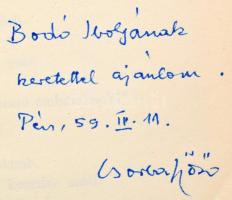 Bodó Ibolyának
szeretettel ajánlom.
Pécs, 59. IV. 11.
Csorba Győző